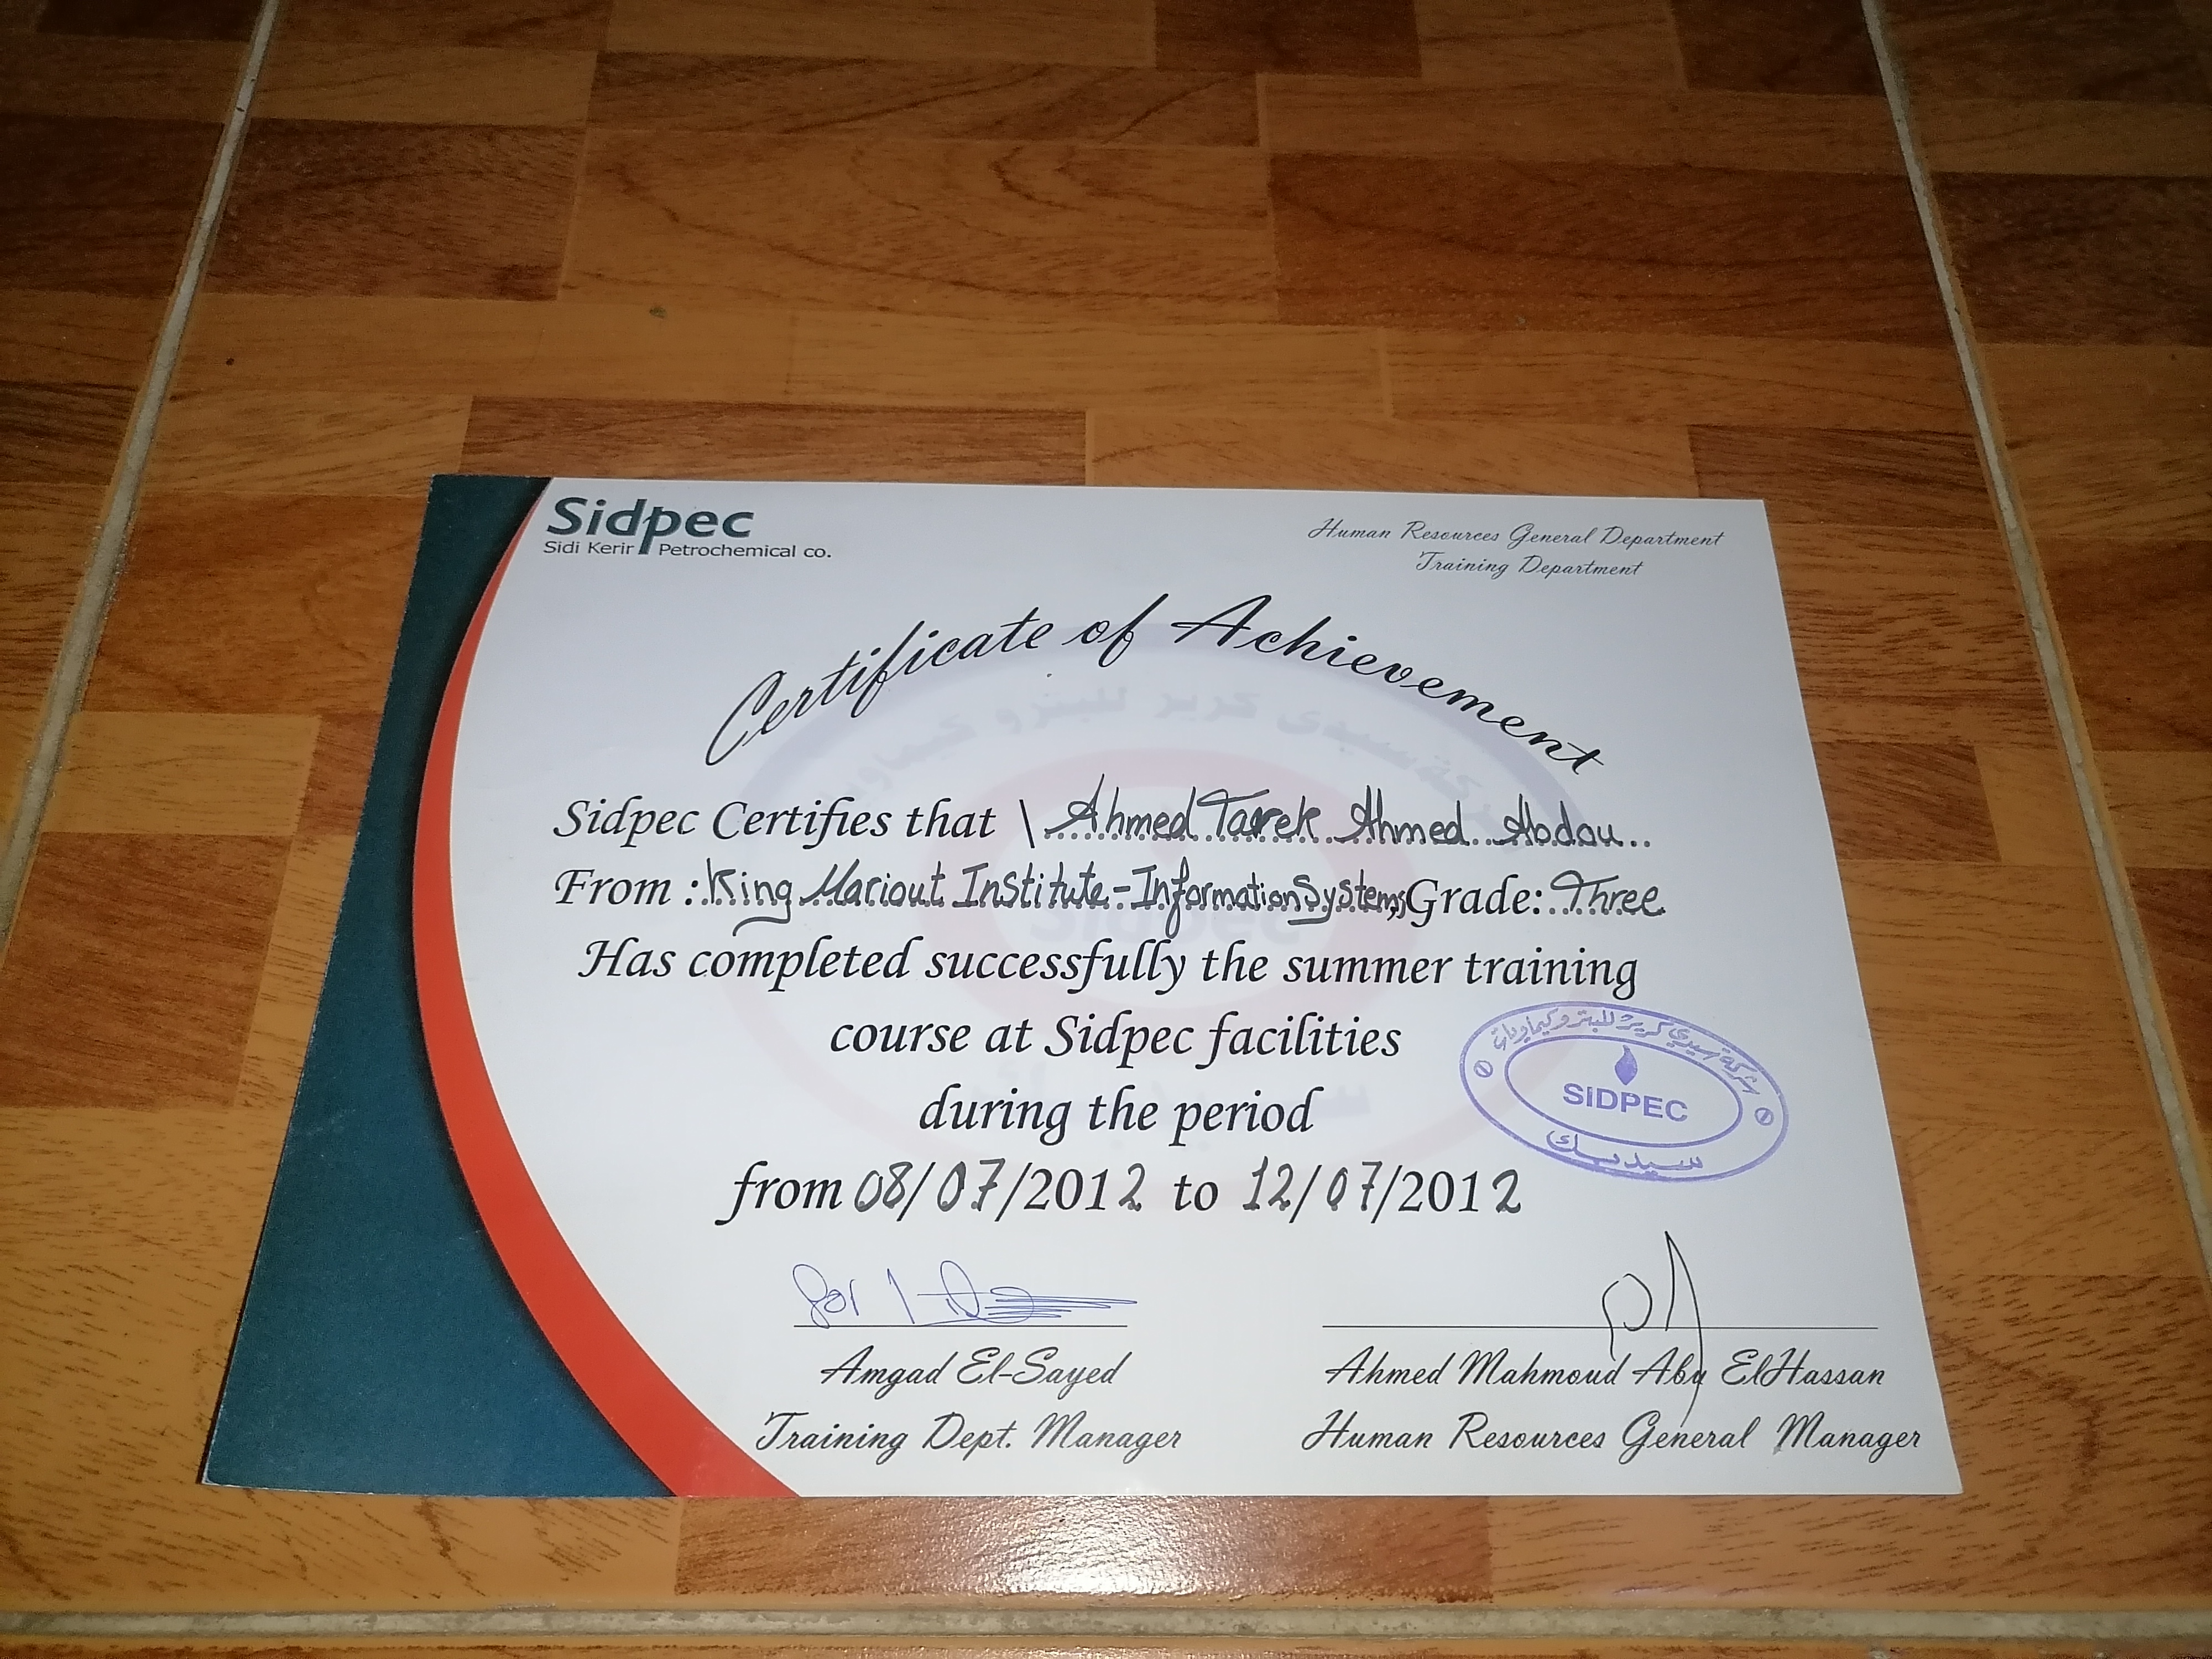 Sidpec
Sidi Kerir Petrochemical co.
Human Resources General Department
Training Department
Certificate of Achievement
Sidpec Certifies that \ Ahmed Tarek Ahmed Abdou
From : King Mariout Institute - Information Systems, Grade: Three
Has completed successfully the summer training
course at Sidpec facilities
during the period
from 08/07/2012 to 12/07/2012
شركة سيدي كرير للبتروكيماويات
SIDPEC
سيدبك
Amgad El-Sayed
Training Dept. Manager
Ahmed Mahmoud Abu ElHassan
Human Resources General Manager